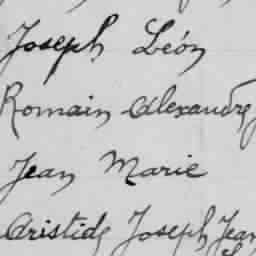 Joseph Léon
Romain Alexandre
Jean Marie
Aristide Joseph Jean